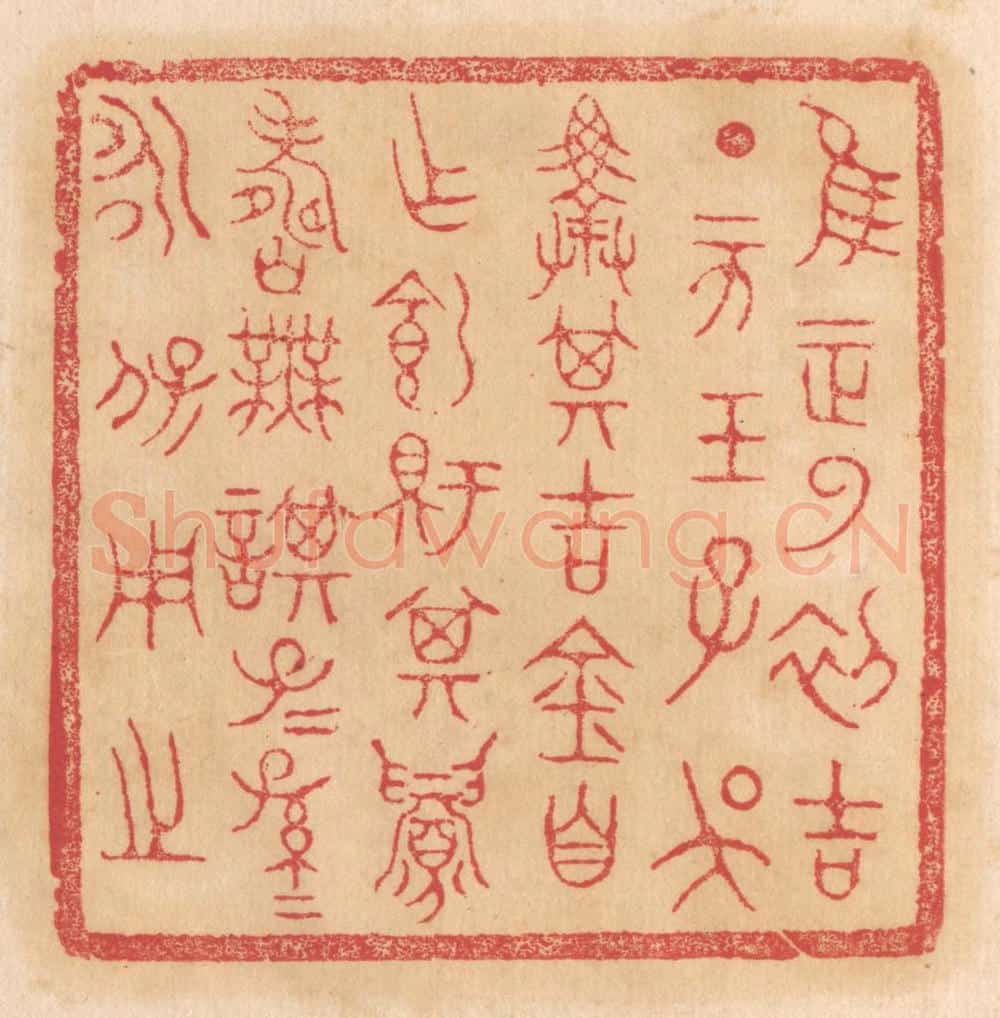 隹正月初吉
丁亥王子吳
擇其吉金自
乍飤鼾其眉
壽無諆子=孫=
永保用之
Shufawang.CN